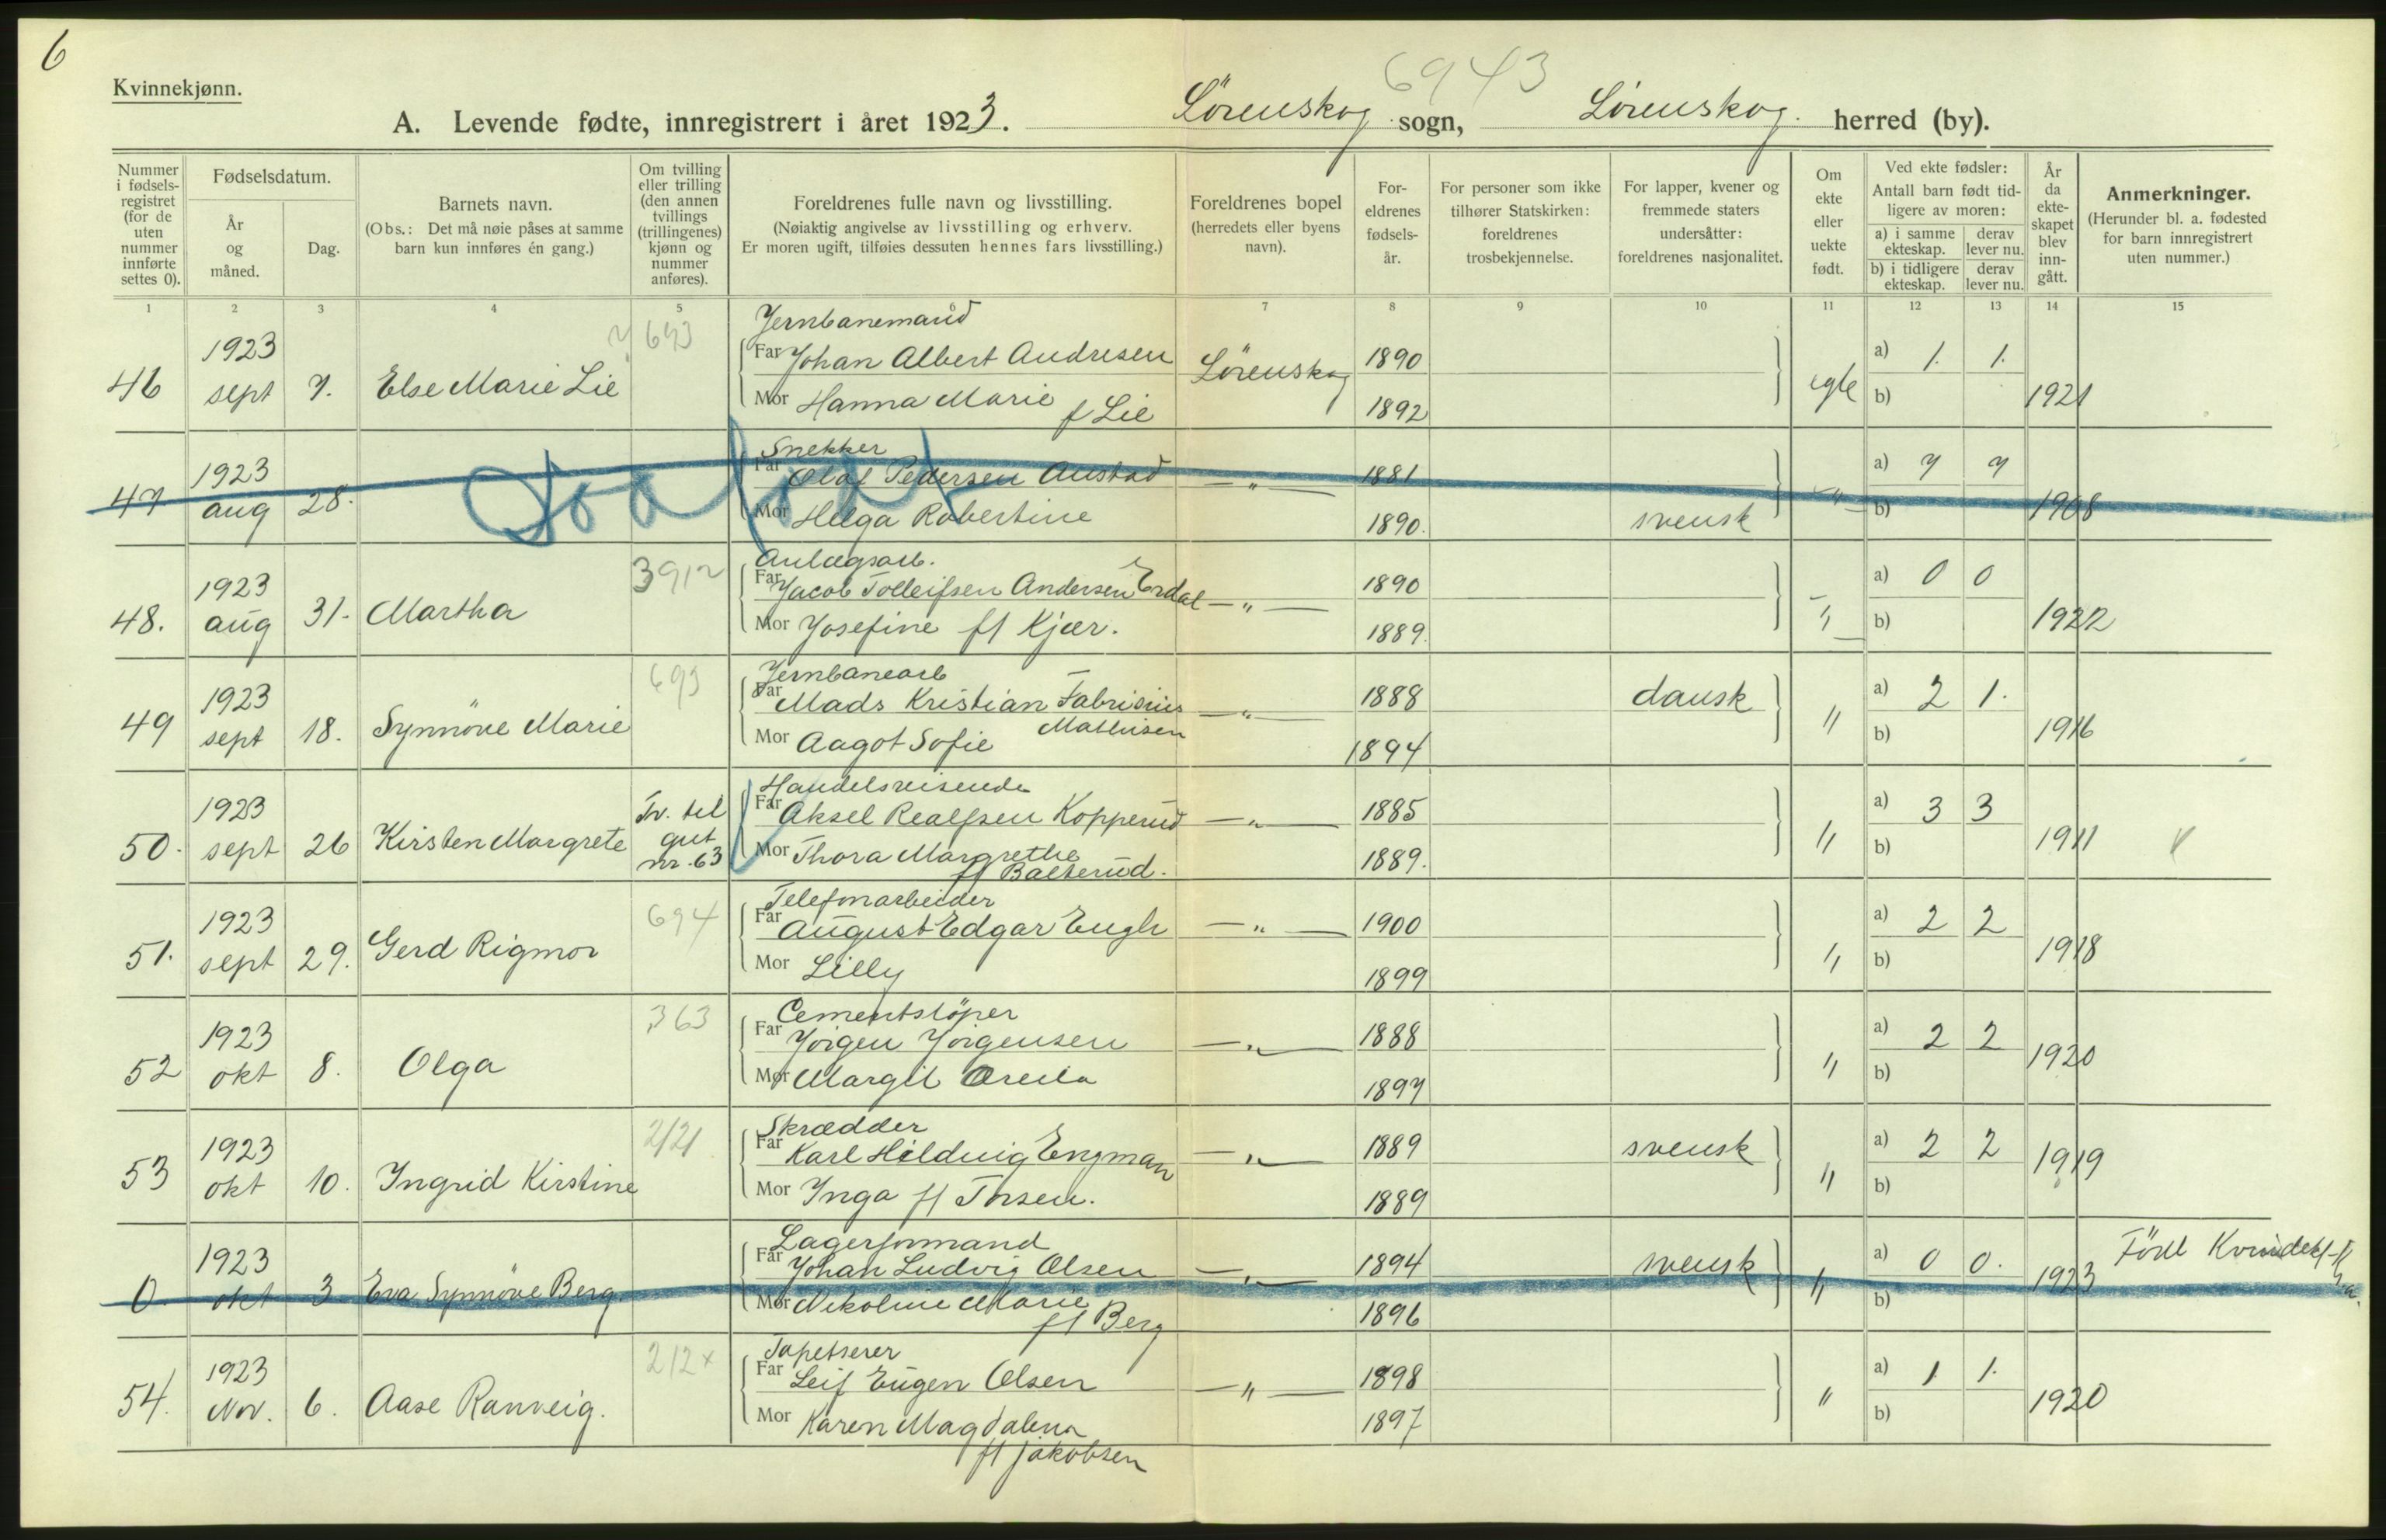 6
Kvinnekjønn.
6943
A. Levende fødte, innregistrert i året 1923. Lörenskog sogn, Lörenskog. herred (by).
Nummer i fødselsregistret (for de uten nummer innførte settes 0).
Fødselsdatum.
År og måned.
Dag.
Barnets navn.
(Obs.: Det må nøie påses at samme barn kun innføres én gang.)
Om tvilling eller trilling (den annen tvillings (trillingenes) kjønn og nummer anføres).
Foreldrenes fulle navn og livsstilling.
(Nøiaktig angivelse av livsstilling og erhverv.
Er moren ugift, tilføies dessuten hennes fars livsstilling.)
Foreldrenes bopel
(herredets eller byens navn).
Foreldrenes fødselsår.
For personer som ikke tilhører Statskirken: foreldrenes trosbekjennelse.
For lapper, kvener og fremmede staters undersåtter: foreldrenes nasjonalitet.
Om ekte eller uekte født.
Ved ekte fødsler:
Antall barn født tidligere av moren:
a) i samme ekteskap.
derav lever nu.
b) i tidligere ekteskap.
derav lever nu.
År da ekteskapet blev inngått.
Anmerkninger.
(Herunder bl. a. fødested for barn innregistrert uten nummer.)
1 2 3 4 5 6 7 8 9 10 11 12 13 14 15
693
Jernbanemand
46 1923 sept 7. Else Marie Lie
Far Johan Albert Andresen Lörenskog 1890 a) 1. 1.
Mor Hanna Marie f Lie 1892 b) 1921
Snekker
47 1923 aug 28.
Far Olaf Pedersen Austad —"— 1881 —"— a) 7 7
Mor Helga Robertine 1890. svensk b) 1908
3912
Anlægsarb.
48. 1923 aug 31. Martha
Far Jacob Tolleifsen Andersen Erdal —"— 1890 " a) 0 0
Mor Josefine ff Kjær. 1889. b) 1922
693
Jernbanearb
49 1923 sept 18. Synnöve Marie
Far Mads Kristian Fabrisius Mathisen —"— 1888 dansk " a) 2 1.
Mor Aagot Sofie 1894 b) 1916
Handelsreisende
50. 1923 sept 26 Kirsten Margrete Tv. til gut nr. 63
Far Aksel Realfsen Kopperud —"— 1885 " a) 3 3
Mor Thora Margrethe ff Balterud. 1889. b) 1911
694
Telefonarbeider
51. 1923 sept 29. Gerd Rigmor
Far August Edgar Engh —"— 1900 " a) 2 2
Mor Lilly 1899 b) 1918
363
Cementstöper
52 1923 okt 8. Olga
Far Jörgen Jörgensen —"— 1888 " a) 2 2
Mor Margit 1897 b) 1920
2121
Skrædder
53 1923 okt 10. Ingrid Kirstine
Far Karl Hildvig Engman —"— 1889 svensk " a) 2 2
Mor Inga ff Thsen. 1889 b) 1919
Lagerformand
0. 1923 okt 3 Eva Synnöve Berg.
Far Johan Ludvig Olsen —"— 1894 svensk " a) 0 0. Född
Mor Nikoline Marie ff Berg 1896 b) 1923
212x
Tapetserer
54. 1923 Nov. 6. Aase Ranveig.
Far Leif Eugen Olsen —"— 1898 " a) 1 1.
Mor Karen Magdalena ff Jakobsen 1897 b) 1920